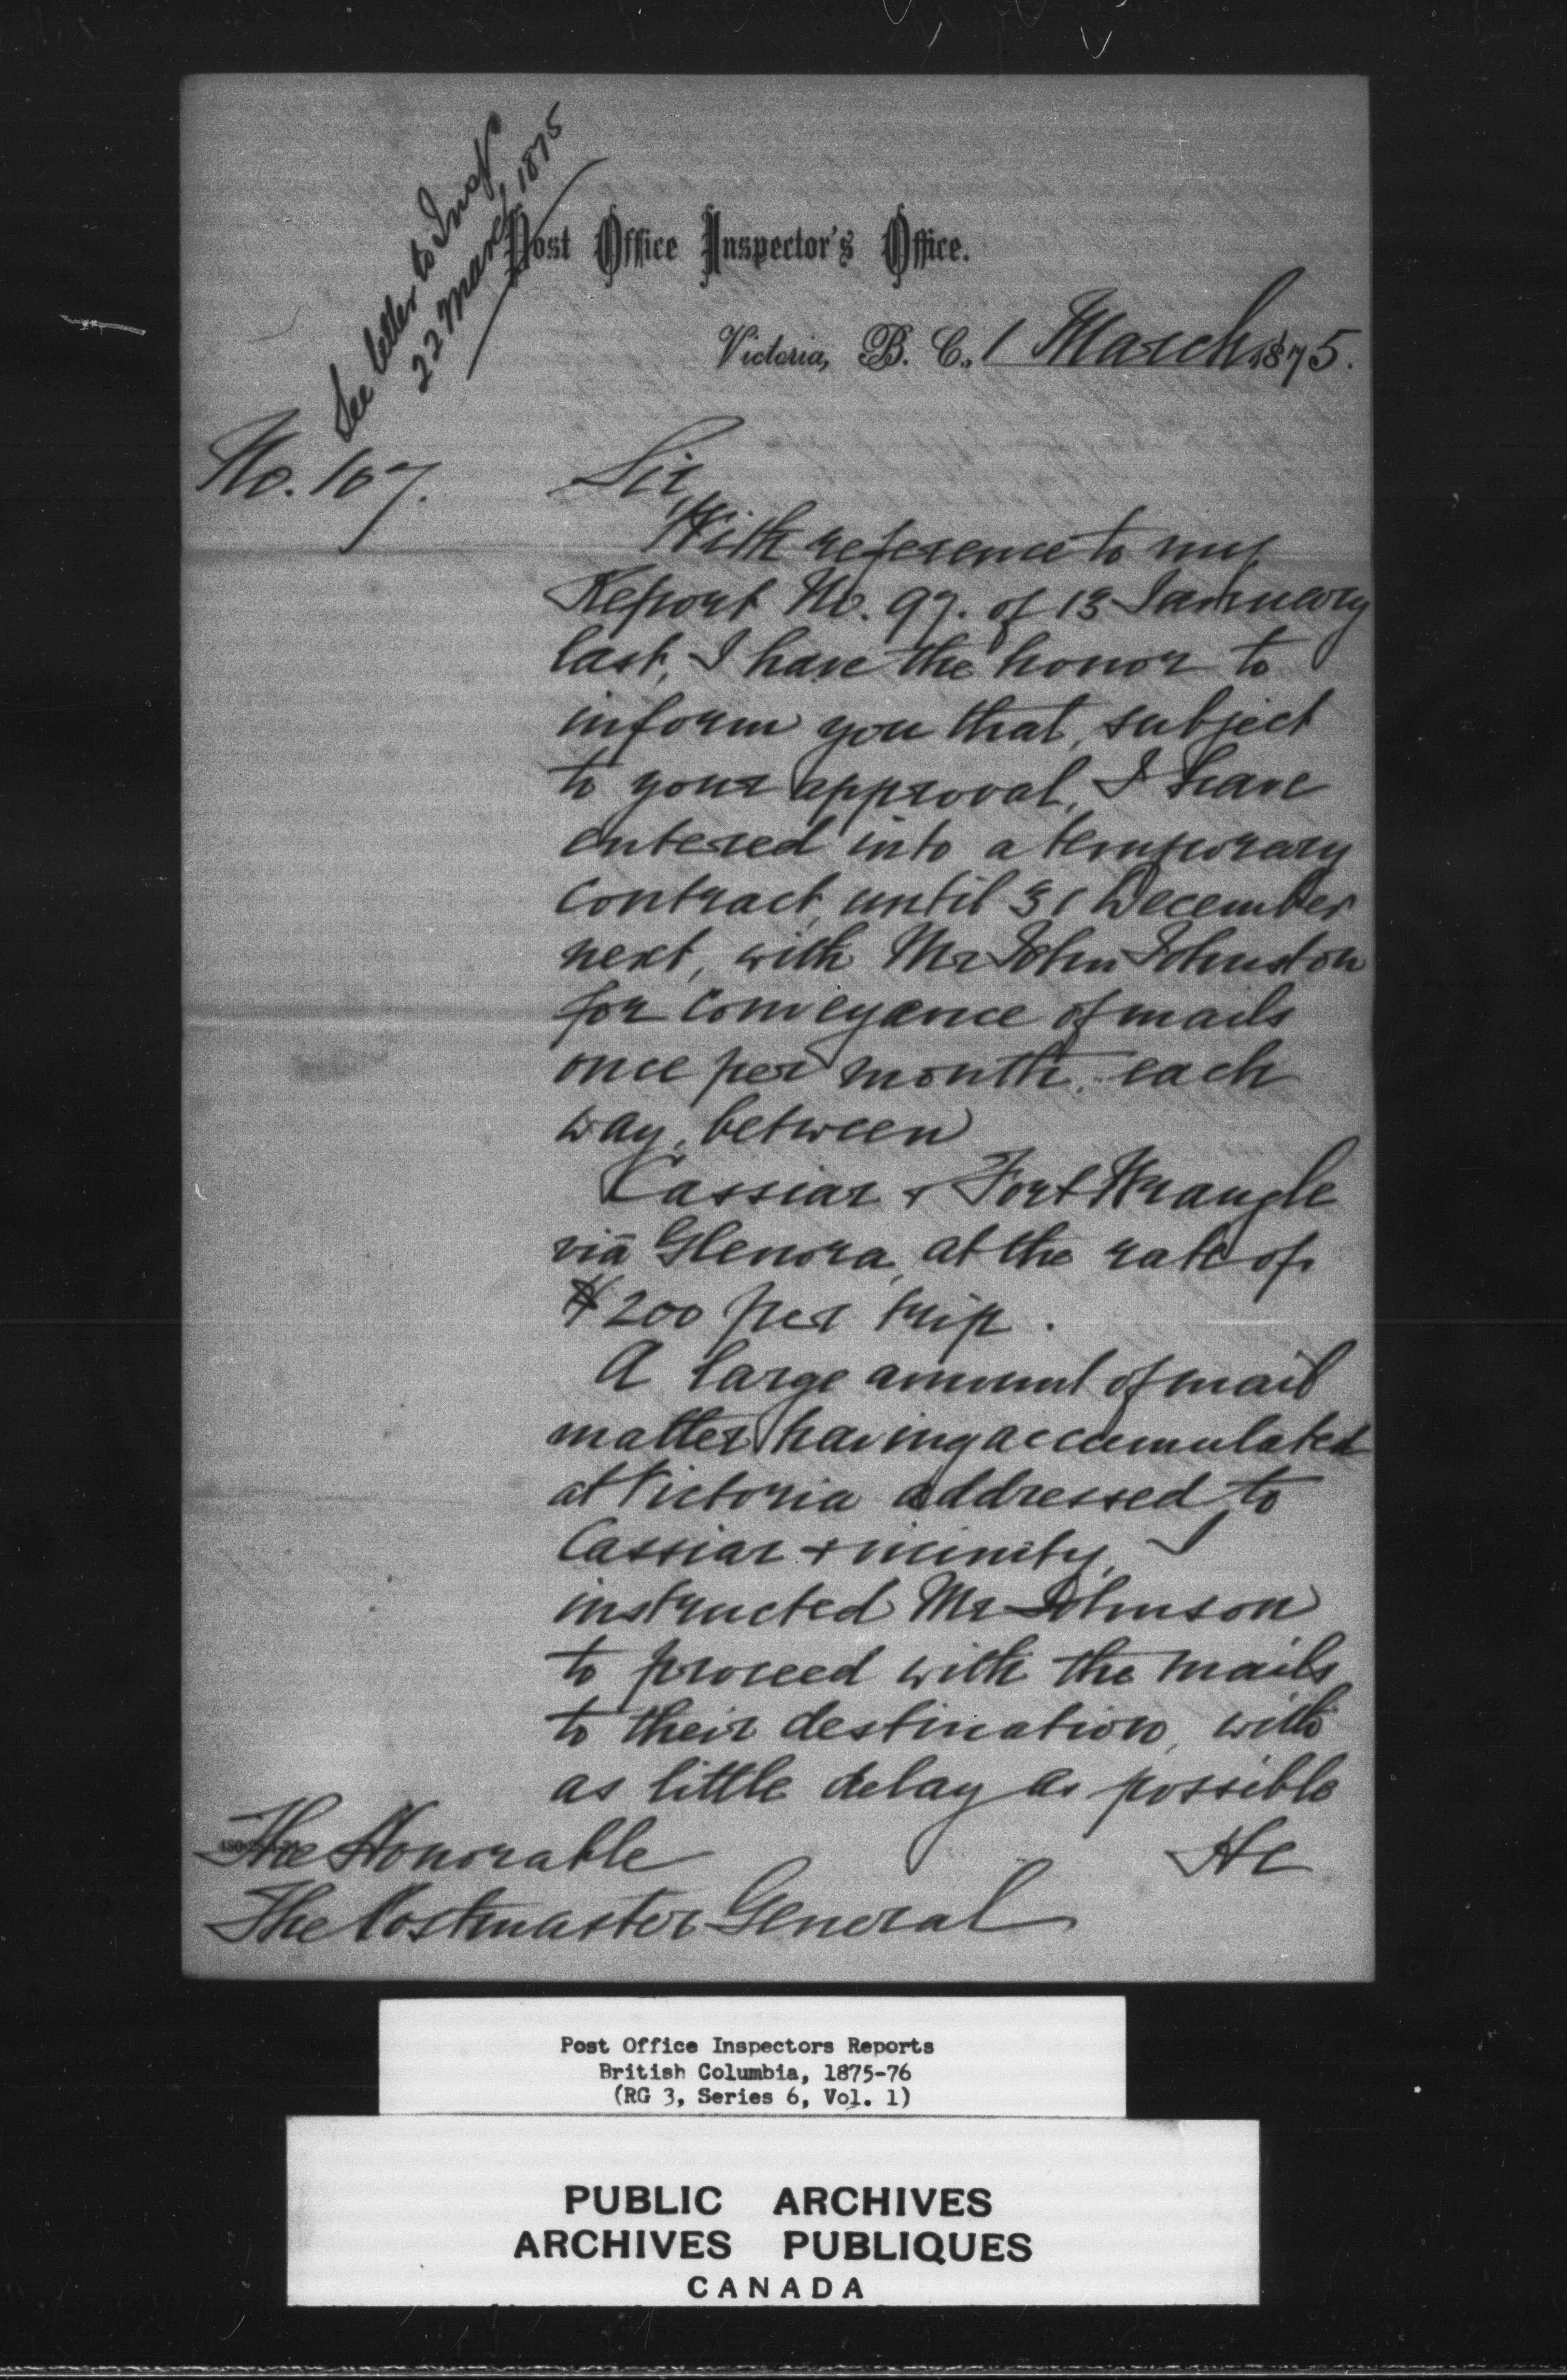 See letter to Insp
22 March 1875
Post Office Inspector's Office.
Victoria, B. C., 1 March 1875.
No. 107.
Sir,
With reference to my
Report No. 97. of 13 January
last, I have the honor to
inform you that, subject
to your approval, I have
entered into a temporary
contract, until 31 December
next, with Mr John Johnston
for conveyance of mails
once per month, each
way, between
Cassiar & Fort Wrangle
via Glenora, at the rate of
$200 per trip.
A large amount of mail
matter having accumulated
at Victoria addressed to
Cassiar & vicinity, I
instructed Mr Johnson
to proceed with the mails
to their destination, with
as little delay as possible
He
The Honorable
The Postmaster General
Post Office Inspectors Reports
British Columbia, 1875-76
(RG 3, Series 6, Vol. 1)
PUBLIC ARCHIVES
ARCHIVES PUBLIQUES
CANADA